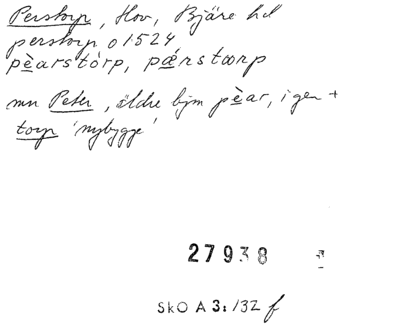 Perstorp, Hov, Bjäre hd
perstorp o 1524
pèarstórp, pǽrstœrp
mn Peter, äldre bjm pèar, i gen +
torp 'nybygge'
27938
SkO A 3: 132 f